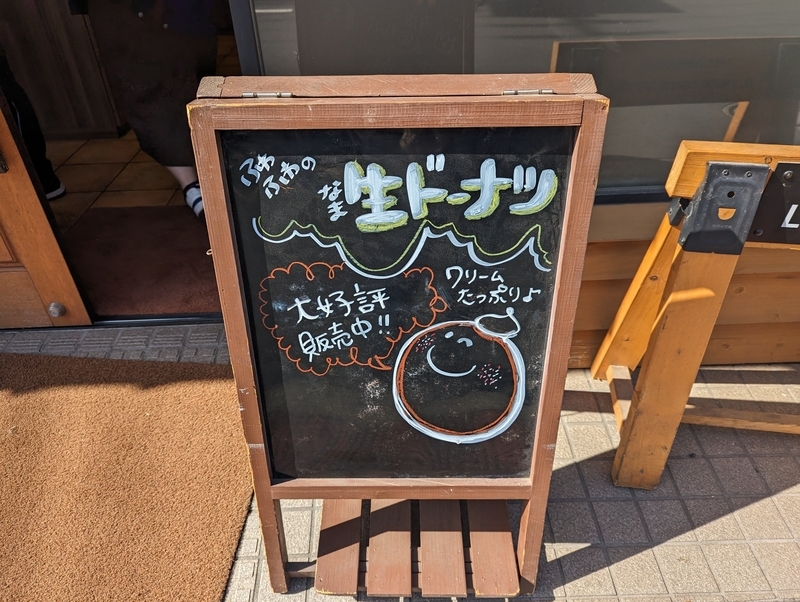 ふわふわの
なま
生ドーナツ
クリーム
たっぷりよ
大好評
販売中!!
L